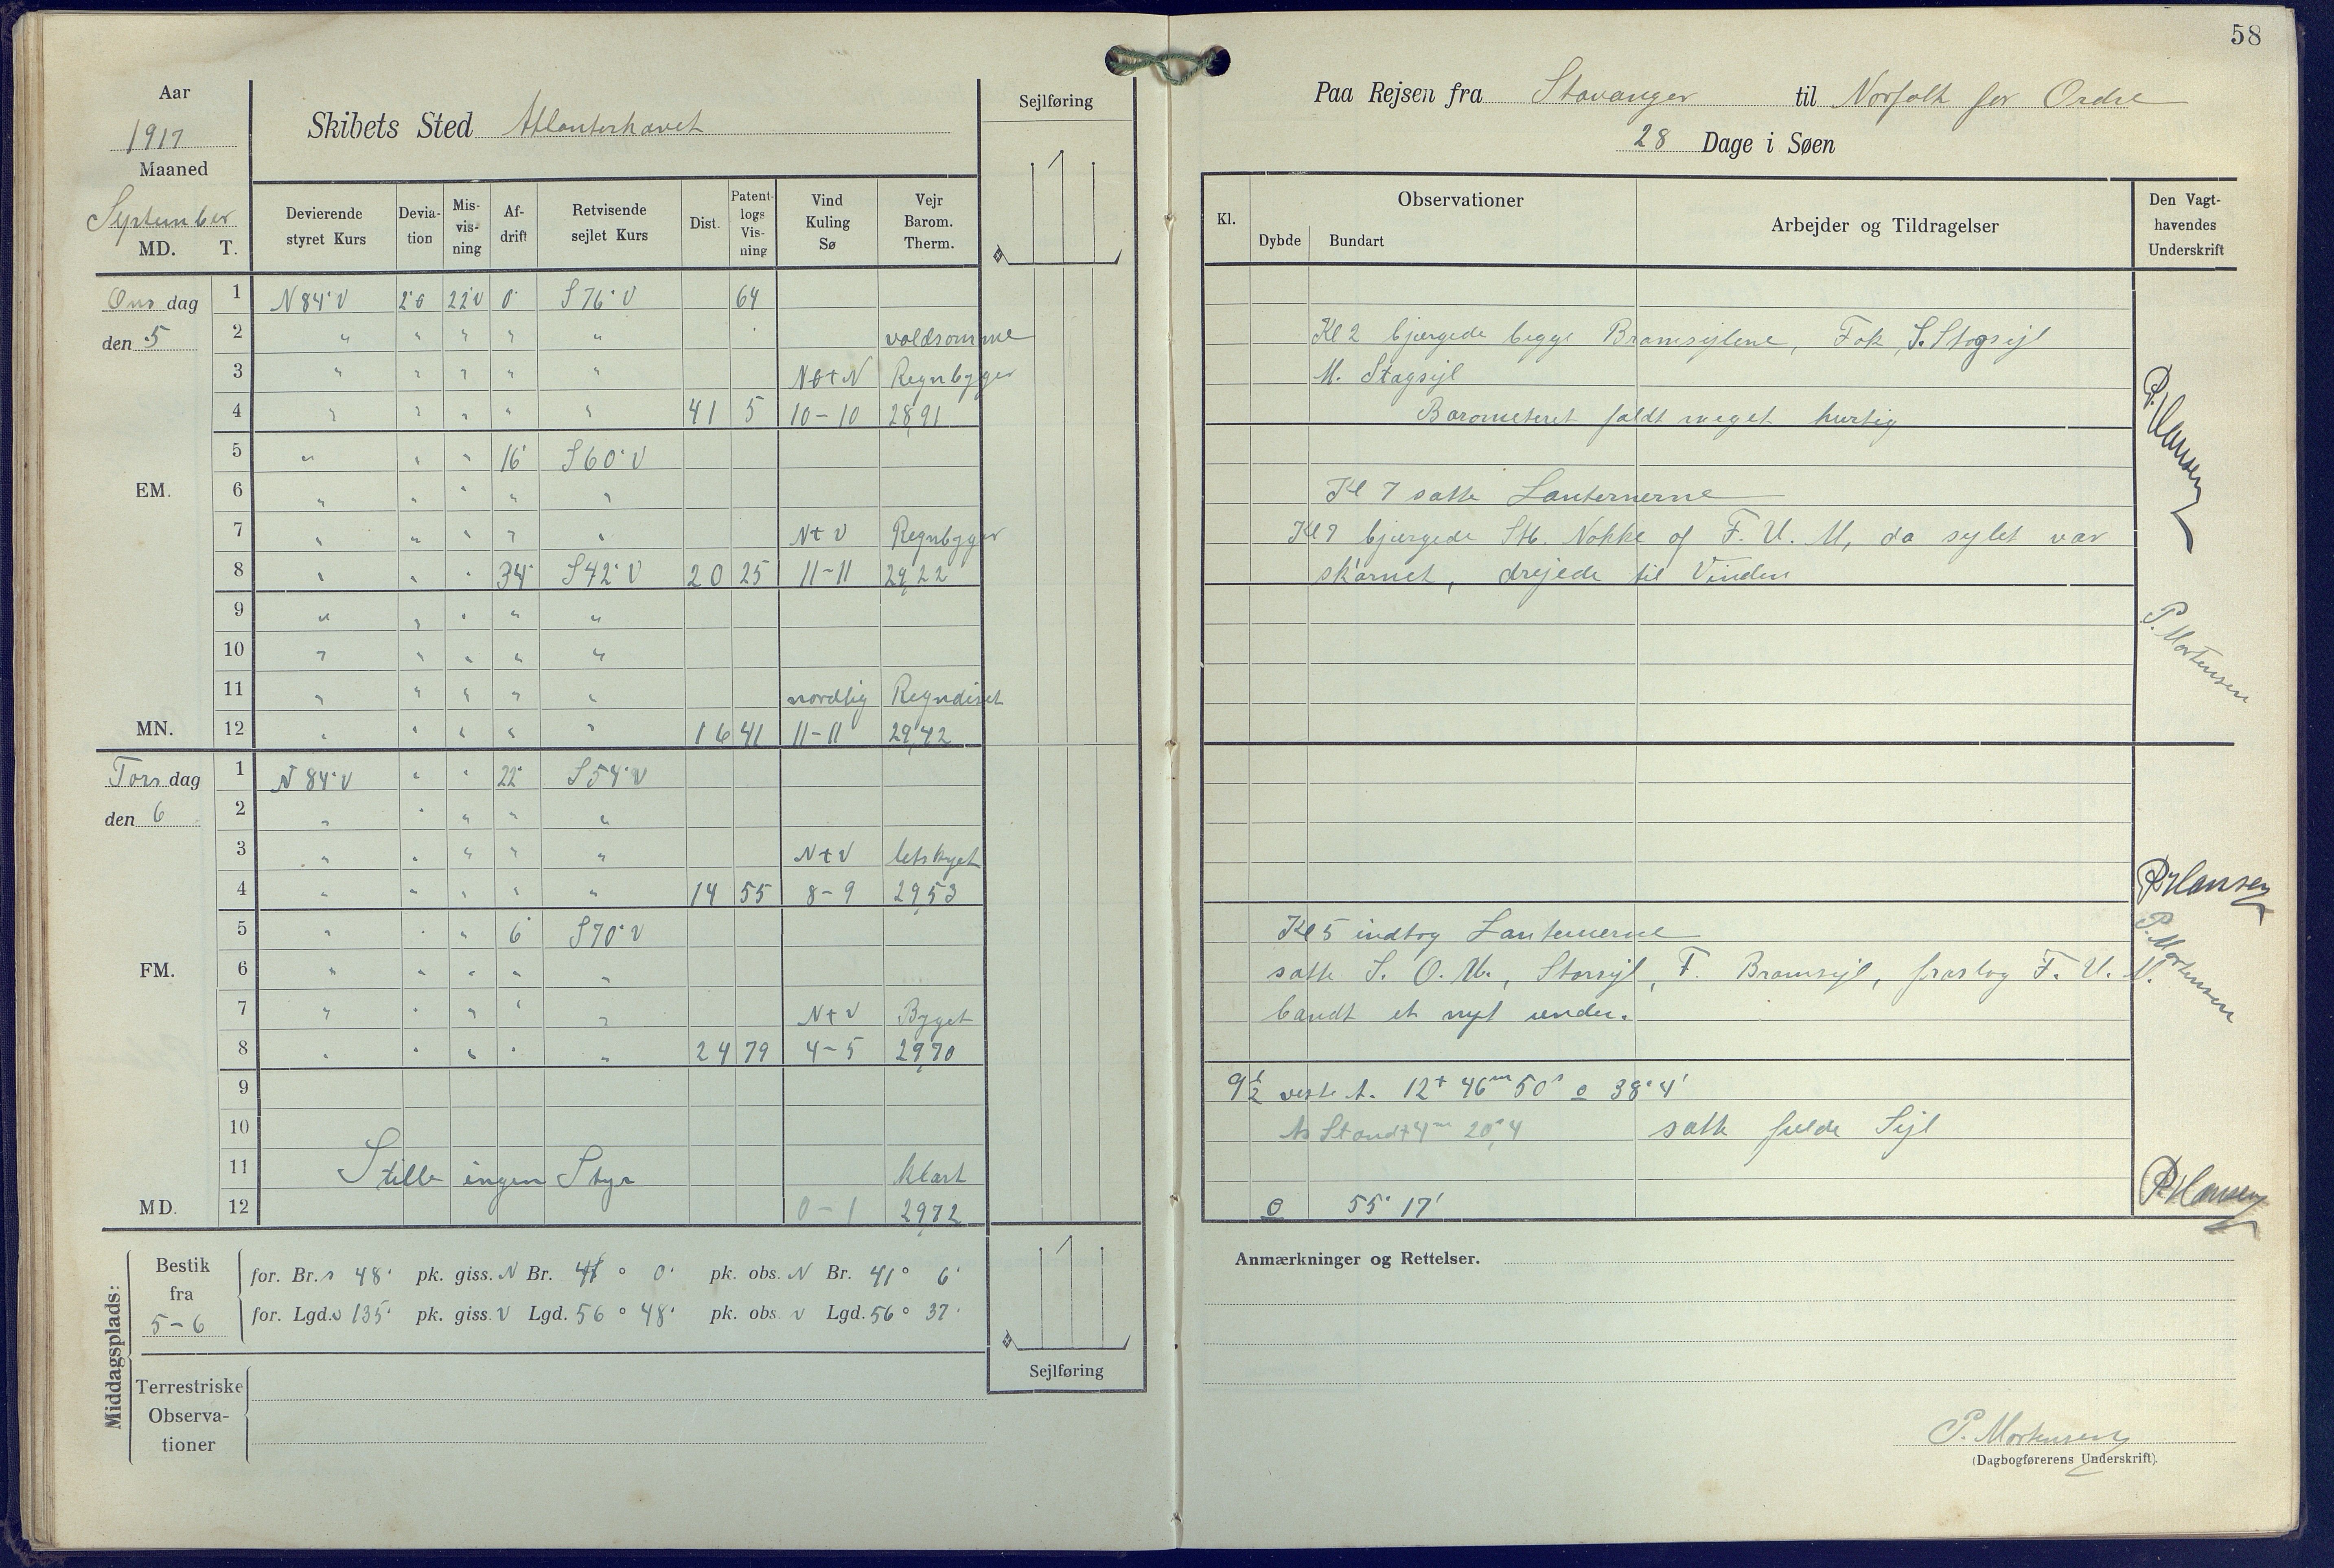 58
Aar
1917
Maaned
September
MD. T.
Skibets Sted Atlanterhavet
Sejlføring
Devierende styret Kurs
Devia-tion
Mis-vis-ning
Af-drift
Retvisende sejlet Kurs
Dist.
Patent-logs Vis-ning
Vind Kuling Sø
Vejr Barom. Therm.
Ons dag 1 N 84° V 2°Ø 22°V 0° S 76° V 64
den 5 2 " " " " " voldsomme
3 " " " " " NØtN Regnbyger
4 " " " " " 41 5 10-10 28,91
5 " " " 16° S 60° V
EM. 6 " " " " "
7 " " " " " NtV Regnbyger
8 " " " 34° S 42° V 20 25 11-11 29,22
9 " " " " "
10 " " " " "
11 " " " " " nordlig Regndiset
MN. 12 " " " " " 16 41 11-11 29,42
Tors dag 1 N 84° V " " 22° S 54° V
den 6 2 " " " " "
3 " " " " " NtV letskyet
4 " " " " " 14 55 8-9 29,53
5 " " " 6° S 70° V
FM. 6 " " " " "
7 " " " " " NtV Byget
8 " " " " " 24 79 4-5 29,70
9
10
11 Stille ingen Styr klart
MD. 12 0-1 29,72
Middagsplads:
Bestik fra 5-6
for. Br. s 48' pk. giss. N Br. 41° 0' pk. obs. N Br. 41° 6'
for. Lgd. v 135' pk. giss. V Lgd. 56° 48' pk. obs. v Lgd. 56° 37'
Terrestriske Observa-tioner
Sejlføring
Paa Rejsen fra Stavanger til Norfolk for Ordre
28 Dage i Søen
Kl.
Observationer
Dybde Bundart
Arbejder og Tildragelser
Den Vagt-havendes Underskrift
Kl 2 bjergede begge Bramsejlene, Fok, S. Stagsejl
M. Stagsejl
Barometeret faldt meget hurtig
P. Hansen
Kl 7 satte Lanternerne
Kl 7 bjergede Stb. Nokke af F. U. M, da sejlet var
skørnet, drejede til Vinden
P. Mortensen
P Hansen
Kl 5 indtog Lanternerne
satte S. O. M., Storsejl, F. Bramsejl, fraslog F. U. M.
bandt et nyt under.
P. Mortensen
9½ veste A. 12t 46m 50s o 38° 4'
As Stand +4m 20s,4 satte fulde Sejl
o 55° 17'
P Hansen
Anmærkninger og Rettelser.
P. Mortensen
(Dagbogførerens Underskrift).